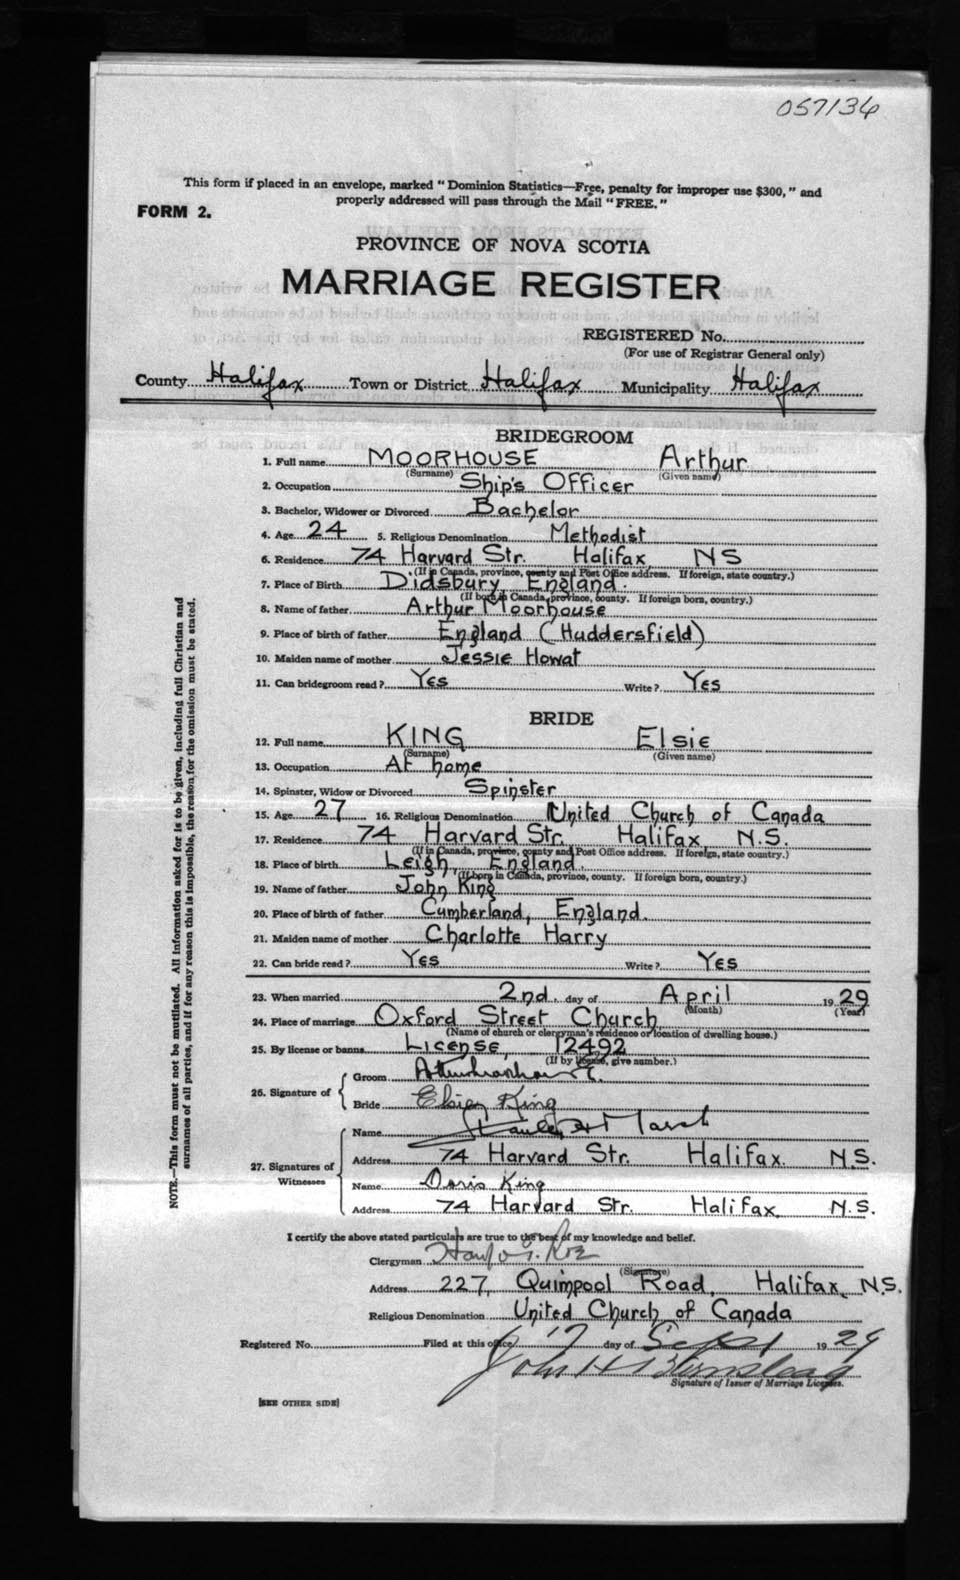 057136
This form if placed in an envelope, marked "Dominion Statistics—Free, penalty for improper use $300," and
properly addressed will pass through the Mail "FREE."
FORM 2.
PROVINCE OF NOVA SCOTIA
MARRIAGE REGISTER
REGISTERED No.
(For use of Registrar General only)
County Halifax Town or District Halifax Municipality Halifax
BRIDEGROOM
1. Full name MOORHOUSE Arthur
(Surname) (Given name)
2. Occupation Ship's Officer
3. Bachelor, Widower or Divorced Bachelor
4. Age 24 5. Religious Denomination Methodist
6. Residence 74 Harvard Str. Halifax NS
(If in Canada, province, county and Post Office address. If foreign, state country.)
7. Place of Birth Didsbury England.
(If born in Canada, province, county. If foreign born, country.)
8. Name of father Arthur Moorhouse
9. Place of birth of father England (Huddersfield)
10. Maiden name of mother Jessie Howat
11. Can bridegroom read? Yes Write? Yes
BRIDE
12. Full name KING Elsie
(Surname) (Given name)
13. Occupation At home
14. Spinster, Widow or Divorced Spinster
15. Age 27 16. Religious Denomination United Church of Canada
17. Residence 74 Harvard Str. Halifax N.S.
(If in Canada, province, county and Post Office address. If foreign, state country.)
18. Place of birth Leigh, England.
(If born in Canada, province, county. If foreign born, country.)
19. Name of father John King
20. Place of birth of father Cumberland, England.
21. Maiden name of mother Charlotte Harry
22. Can bride read? Yes Write? Yes
23. When married 2nd. day of April 1929
(Month) (Year)
24. Place of marriage Oxford Street Church
(Name of church or clergyman's residence or location of dwelling house.)
25. By license or banns License, 12492
(If by license, give number.)
26. Signature of
Groom
Bride Elsie King
27. Signatures of Witnesses
Name Marsh
Address 74 Harvard Str. Halifax. N.S.
Name Doris King
Address 74 Harvard Str. Halifax, N.S.
I certify the above stated particulars are true to the best of my knowledge and belief.
Clergyman
(Signature)
Address 227, Quimpool Road, Halifax, N.S.
Religious Denomination United Church of Canada
Registered No. Filed at this office 17 day of Sept 1929
John H
Signature of Issuer of Marriage Licenses.
[SEE OTHER SIDE]
NOTE.—This form must not be mutilated. All information asked for is to be given, including full Christian and
surnames of all parties, and if for any reason this is impossible, the reason for the omission must be stated.